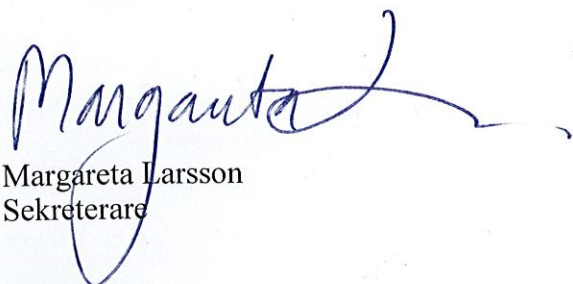 Margareta
Margareta Larsson
Sekreterare